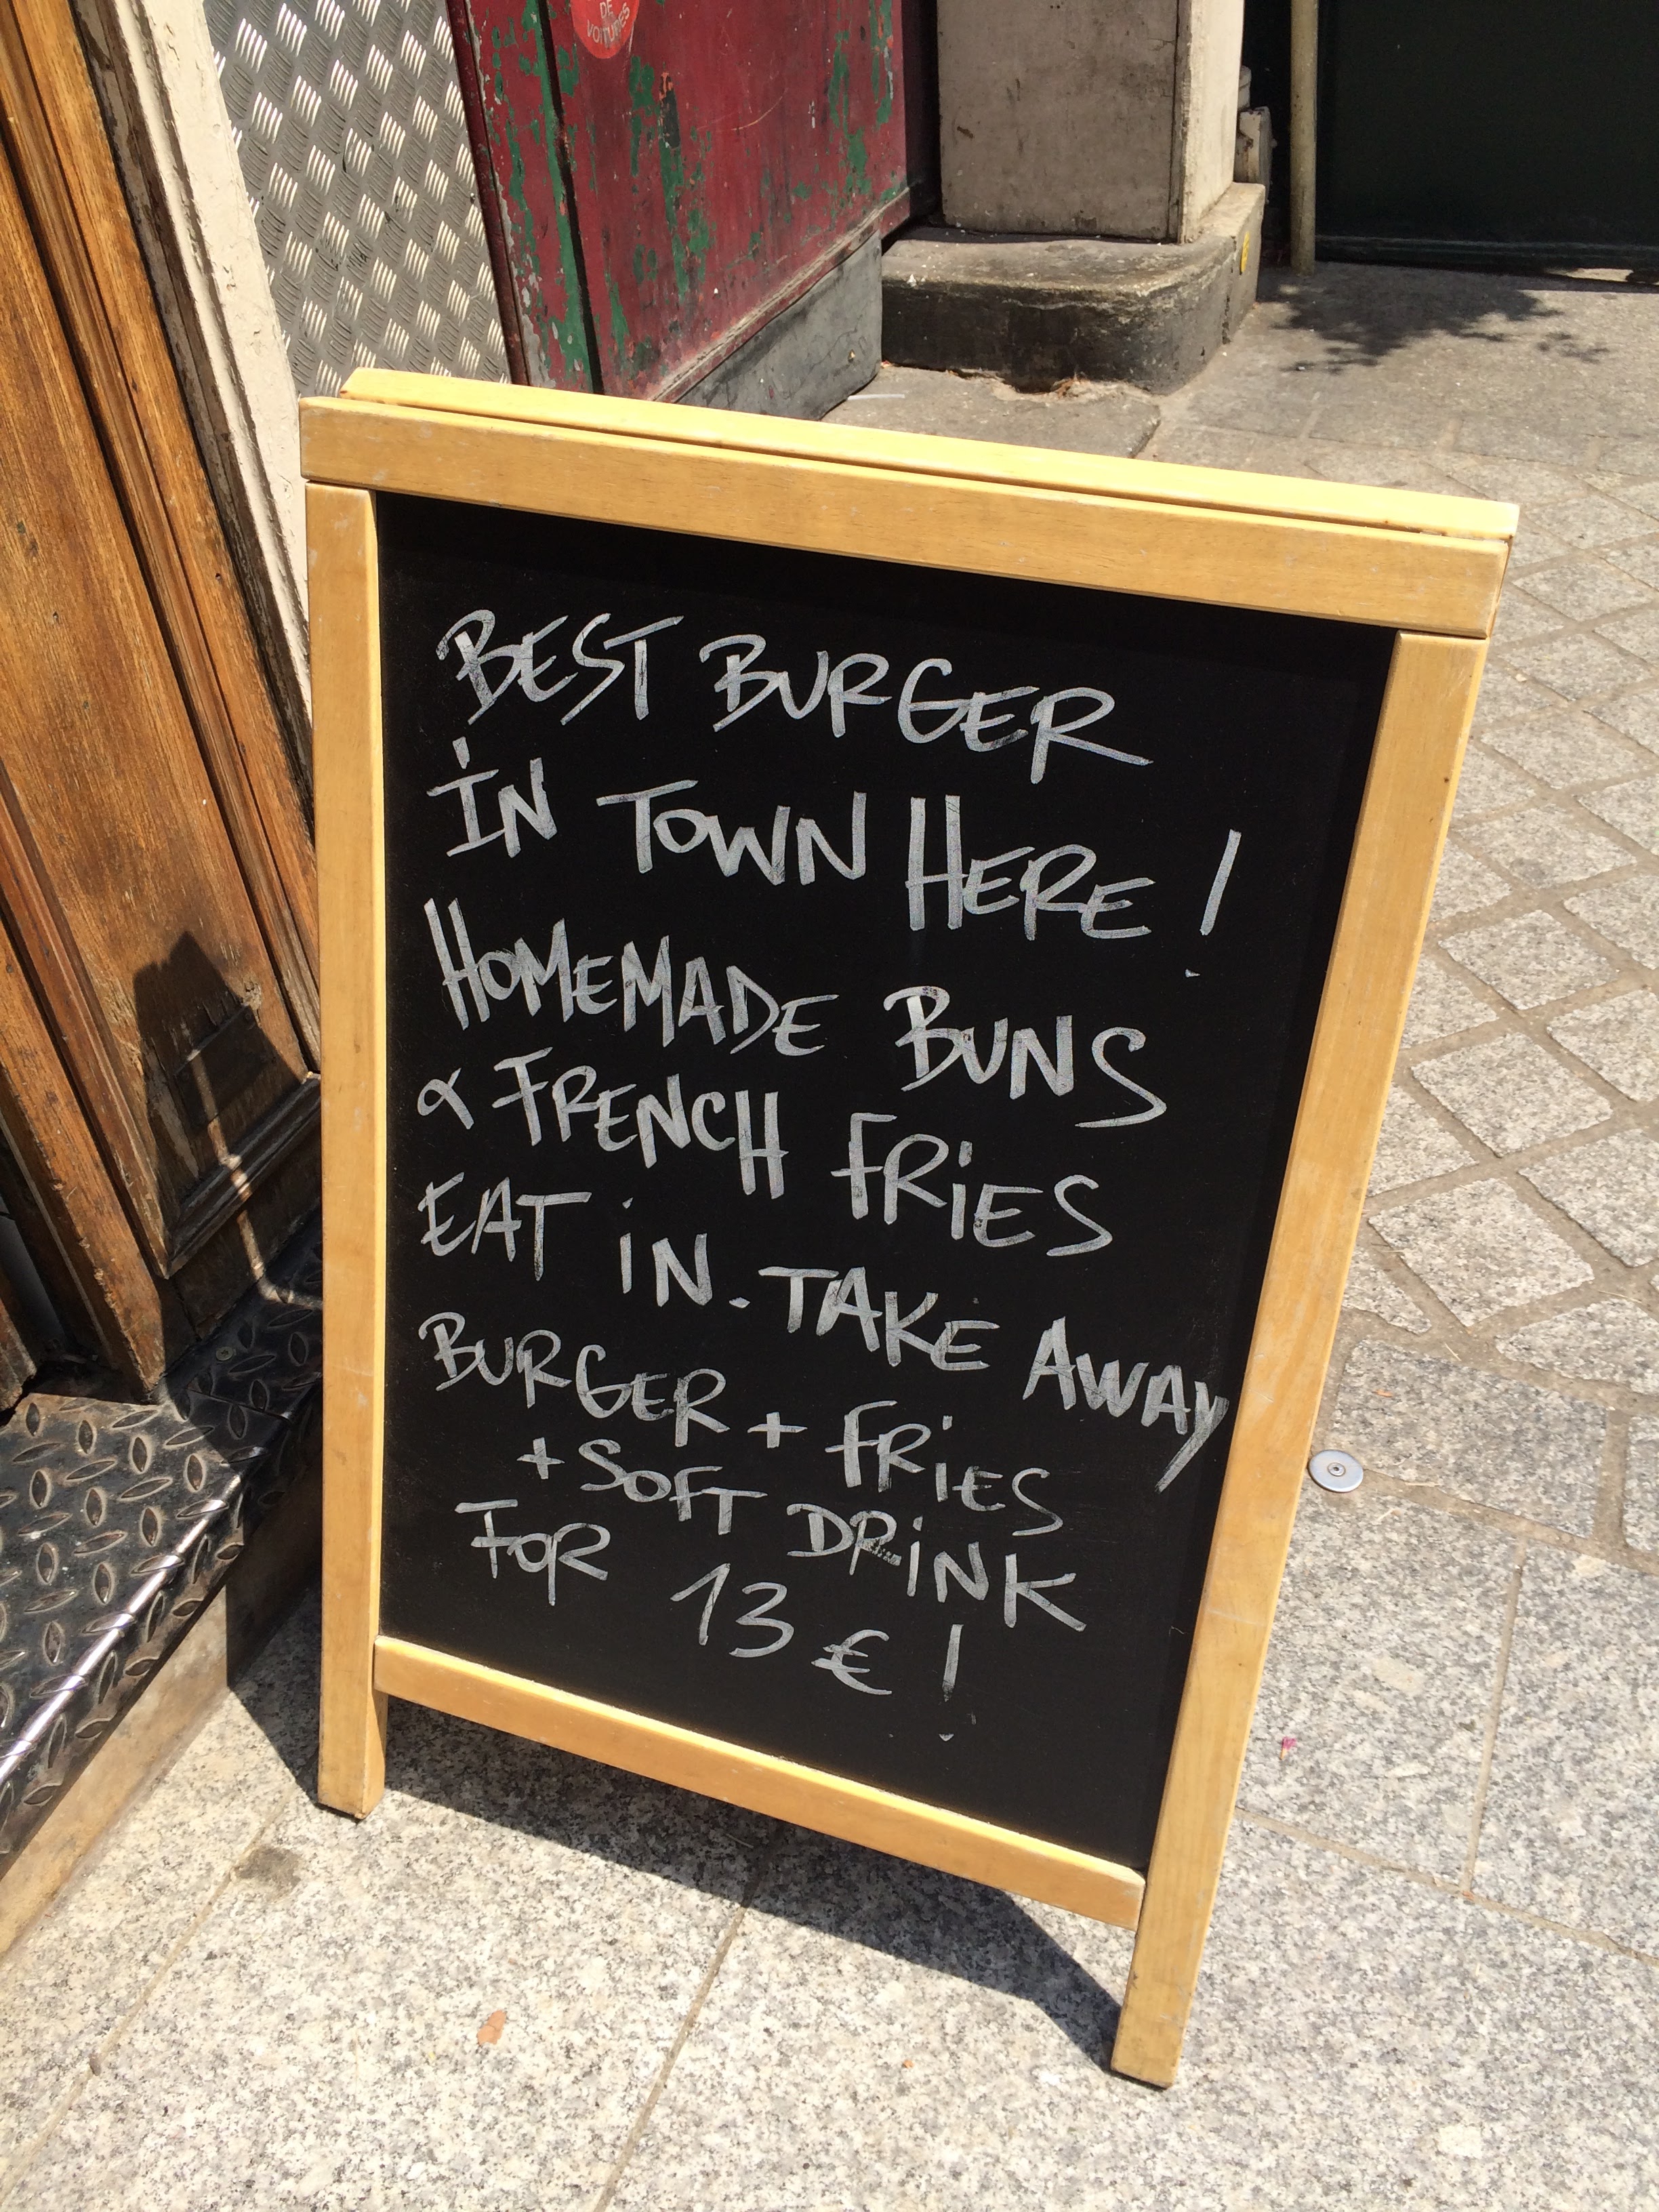 DE
VOITURES
BEST BURGER
IN TOWN HERE !
HOMEMADE BUNS
& FRENCH FRIES
EAT IN. TAKE AWAY
BURGER + FRIES
+ SOFT DRINK
FOR 13 € !